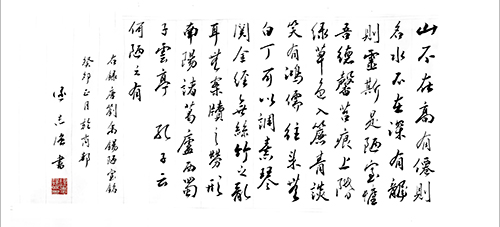 山不在高有僊則
名水不在深有龍
則靈斯是陋室惟
吾德馨苔痕上階
绿草色入簾青談
笑有鴻儒往来無
白丁可以調素琴
閱金經無絲竹之亂
耳無案牘之勞形
南陽諸葛廬西蜀
子雲亭 孔子云
何陋之有
右録唐劉禹錫陋室銘
癸卯正月於商都